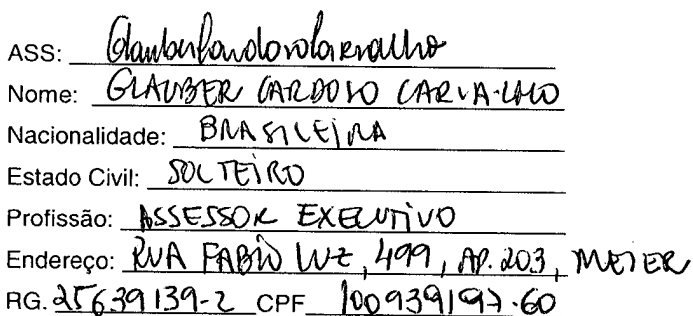 ASS: Glauber Cardoso Carvalho
Nome: GLAUBER CARDOSO CARVALHO
Nacionalidade: BRASILEIRA
Estado Civil: SOLTEIRO
Profissão: ASSESSOR EXECUTIVO
Endereço: RUA FABIO LUZ, 499, AP. 203, MEIER
RG. 25639139-2 CPF 100939197-60